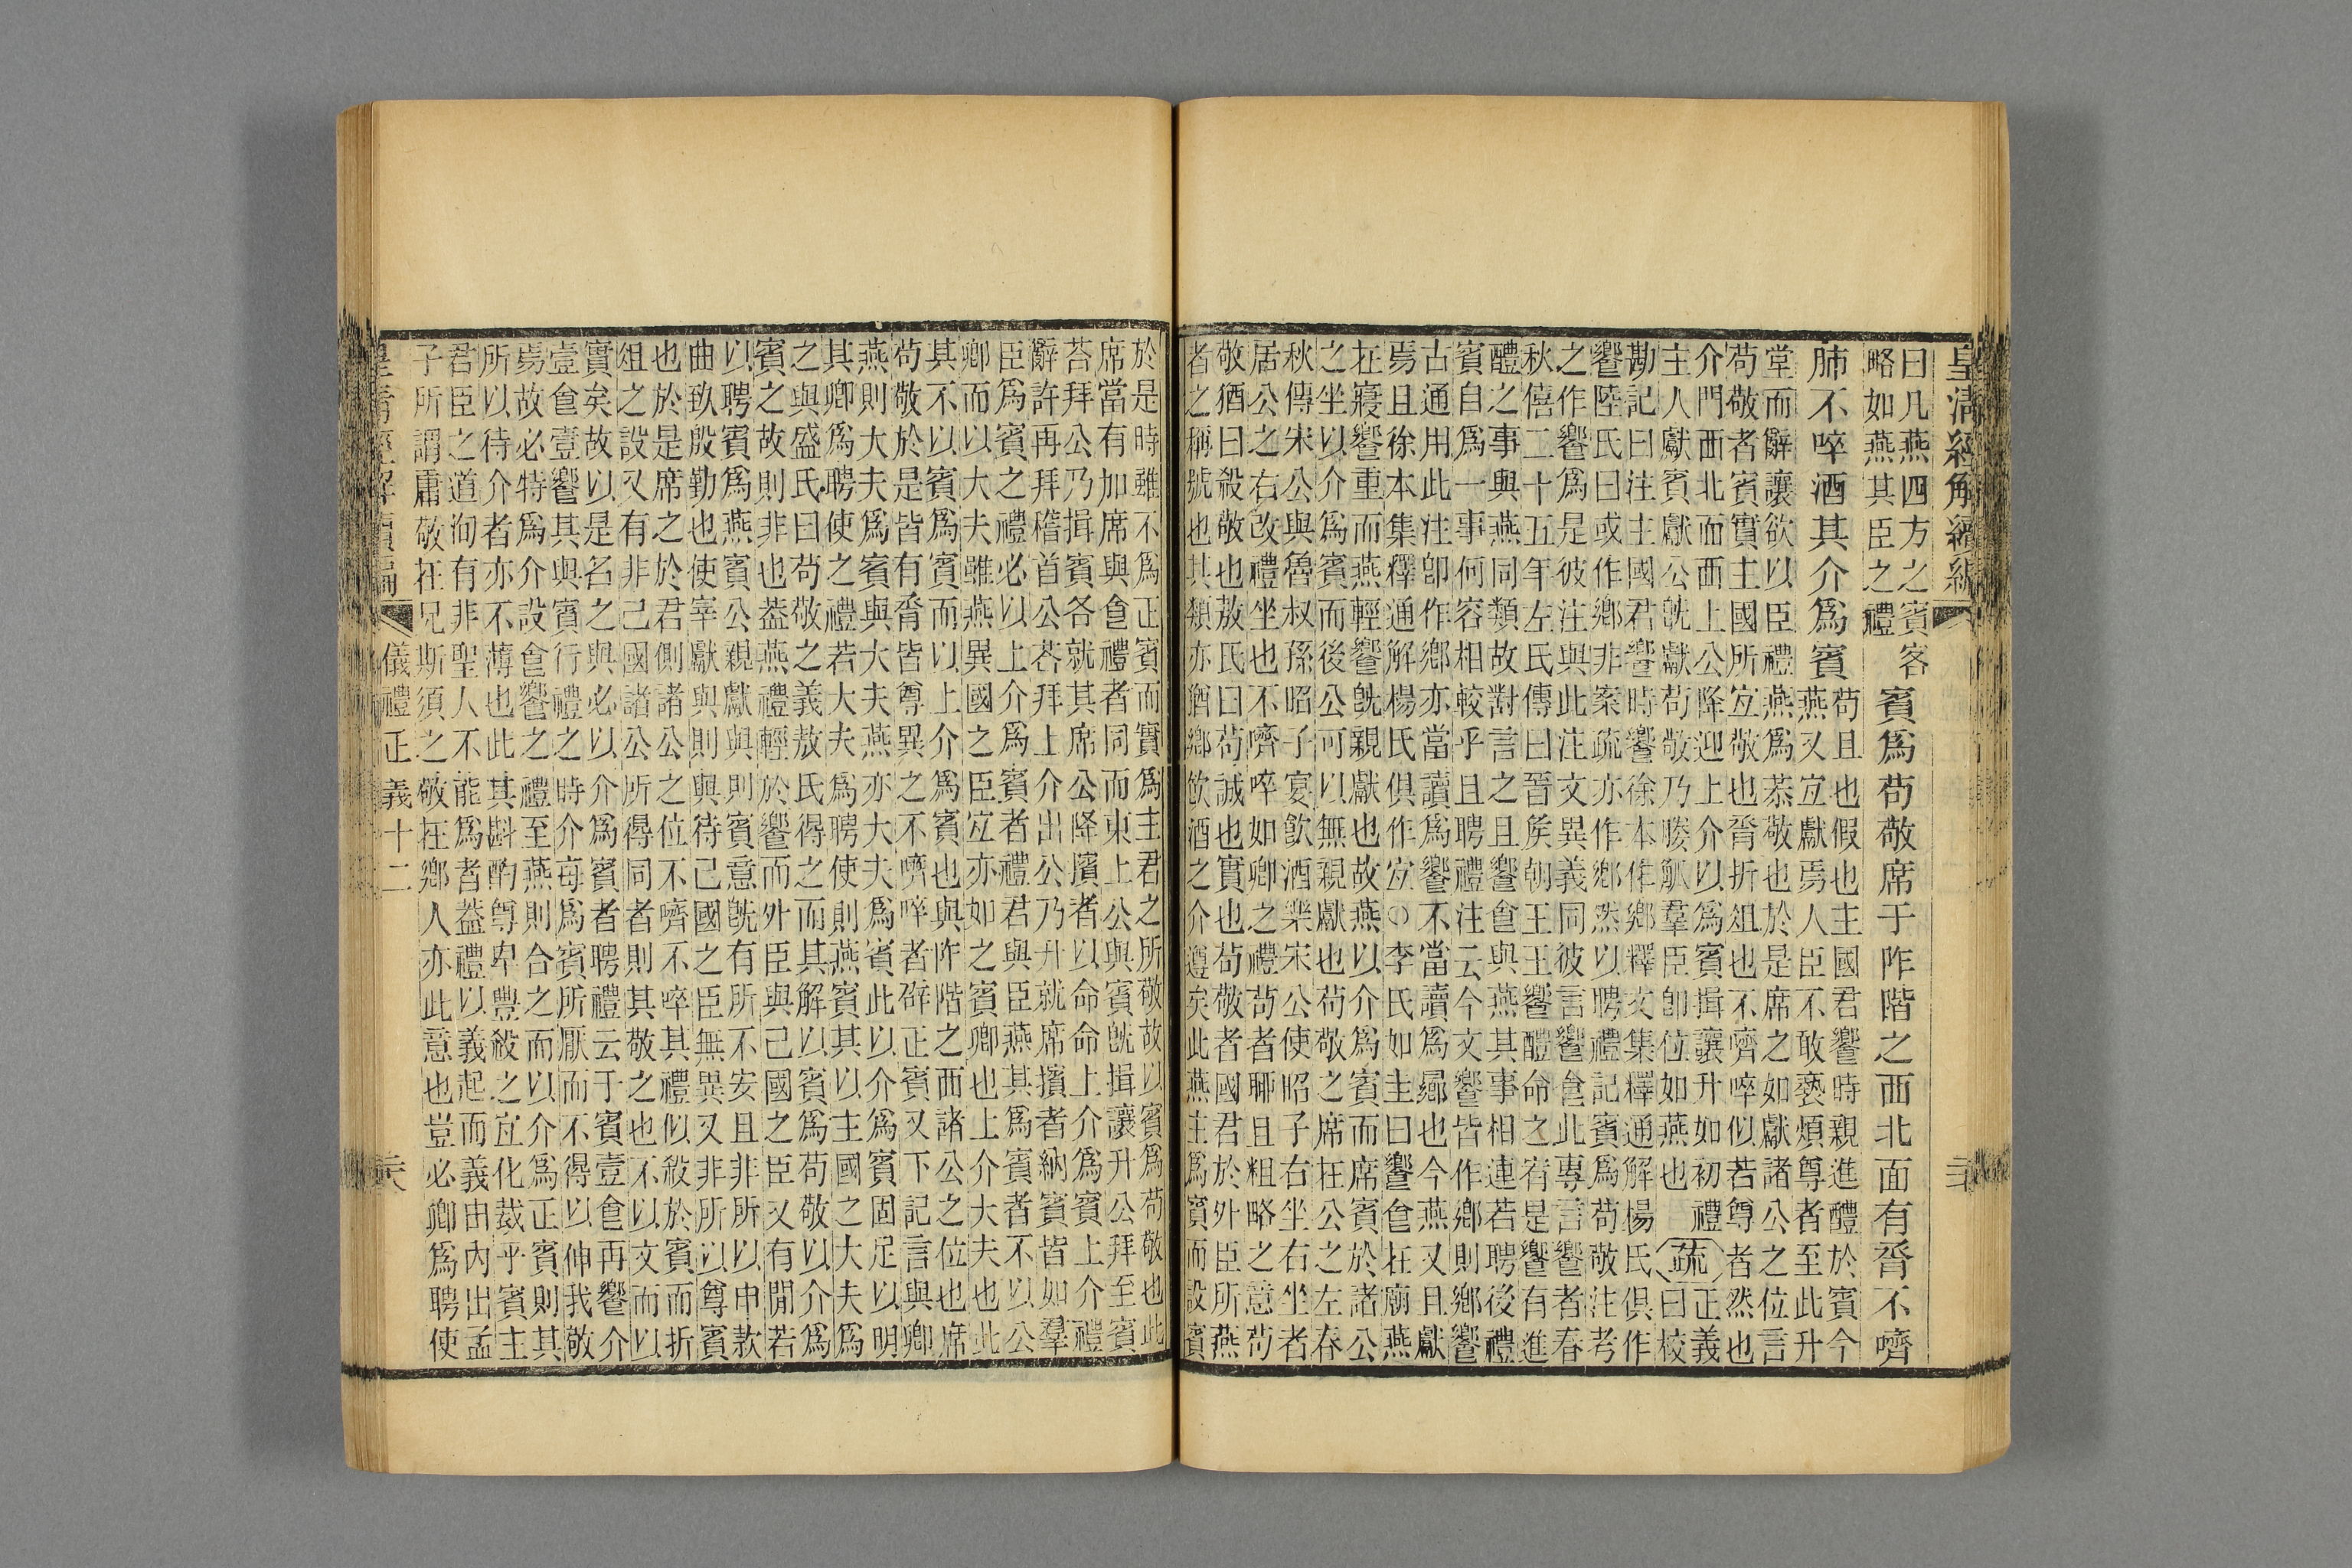 皇淸經解續編
曰凡燕四方之賓客
略如燕其臣之禮
賓爲苟敬席于阼階之西北面有脀不嚌
肺不啐酒其介爲賓
苟且也假也主國君饗時親進醴於賓今
燕又宜獻焉人臣不敢褻煩尊者至此升
堂而辭讓欲以臣禮燕爲恭敬也於是席之如獻諸公之位言
苟敬者賓實主國所宜敬也脀折俎也不嚌啐似若尊者然也
介門西北面西上公降迎上介以爲賓揖讓升如初禮
主人獻賓獻公旣獻苟敬乃媵觚羣臣卽位如燕也
疏
正義
曰校
勘記曰注主國君饗時饗徐本作鄉釋文集釋通解楊氏俱作
饗陸氏曰或作鄉非案疏亦作鄉然以聘禮記賓爲苟敬注考
之作饗爲是彼注與此注文異義同彼言饗食此專言饗者春
秋僖二十五年左氏傳曰晉矦朝王王饗醴命之宥是饗有進
醴之事與燕同類故對言之且饗食與燕其事相連若聘後禮
賓自爲一事何容相較乎且聘禮注云今文饗皆作鄉則鄉饗
古通用此注卽作鄉亦當讀爲饗不當讀爲曏也今燕又且獻
焉且徐本集釋通解楊氏俱作宜○李氏如圭曰饗食在廟燕
在寢饗重而燕輕饗旣親獻也故燕以介爲賓而席賓於諸公
之坐以介爲賓而後公可以無親獻也苟敬之席在公之左春
秋傳宋公與魯叔孫昭子宴飮酒樂宋公使昭子右坐右坐者
居公之右改禮坐也不嚌啐如卿之禮苟者聊且粗略之意苟
敬猶曰殺敬也敖氏曰苟誠也實也苟敬者國君於外臣所燕
者之稱號也其類亦猶鄉飮酒之介遵矣此燕主爲賓而設賓
於是時雖不爲正賓而實爲主君之所敬故以賓爲苟敬也此
席當有加席與食禮者同而東上公與賓旣揖讓升公拜至賓
荅拜公乃揖賓各就其席公降擯者以命命上介爲賓上介禮
辭許再拜稽首公荅拜上介出公乃升就席擯者納賓皆如羣
臣爲賓之禮必以上介爲賓者禮君與臣燕其爲賓者不以公
卿而以大夫雖燕異國之臣宜亦如之賓卿也上介大夫也此
其不以賓爲賓而以上介爲賓也與阼階之西諸公之位也席
苟敬於是皆有脀皆尊異之不嚌啐者辟正賓又下記言與卿
燕則大夫爲賓與大夫燕亦大夫爲賓此以介爲賓固足以明
其卿爲聘使之禮若大夫爲聘使則燕賓其以主國之大夫爲
之與盛氏曰苟敬之義敖氏得之而其解以賓爲苟敬以介爲
賓之故則非也蓋燕禮輕於饗而外臣與己國之臣又有閒若
以聘賓爲燕賓公親獻與則賓意旣有所不安且非所以申款
曲致殷勤也使宰獻與則與待己國之臣無異又非所以尊賓
也於是席之於君側諸公之位不嚌不啐其禮似殺於賓而折
俎之設又有非己國諸公所得同者則其敬之也不以文而以
實矣故以是名之與必以介爲賓者聘禮云于賓壹食再饗介
壹食壹饗其與賓行禮之時介每爲賓所厭而不得以伸我敬
焉故必特爲介設食饗之禮至燕則合之而以介爲正賓則其
所以待介者亦不薄也此其斟酌尊卑豐殺之宜化裁乎賓主
君臣之道洵有非聖人不能爲者蓋禮以義起而義由內出孟
子所謂庸敬在兄斯須之敬在鄉人亦此意也豈必卿爲聘使
皇淸經解續編 儀禮正義十二